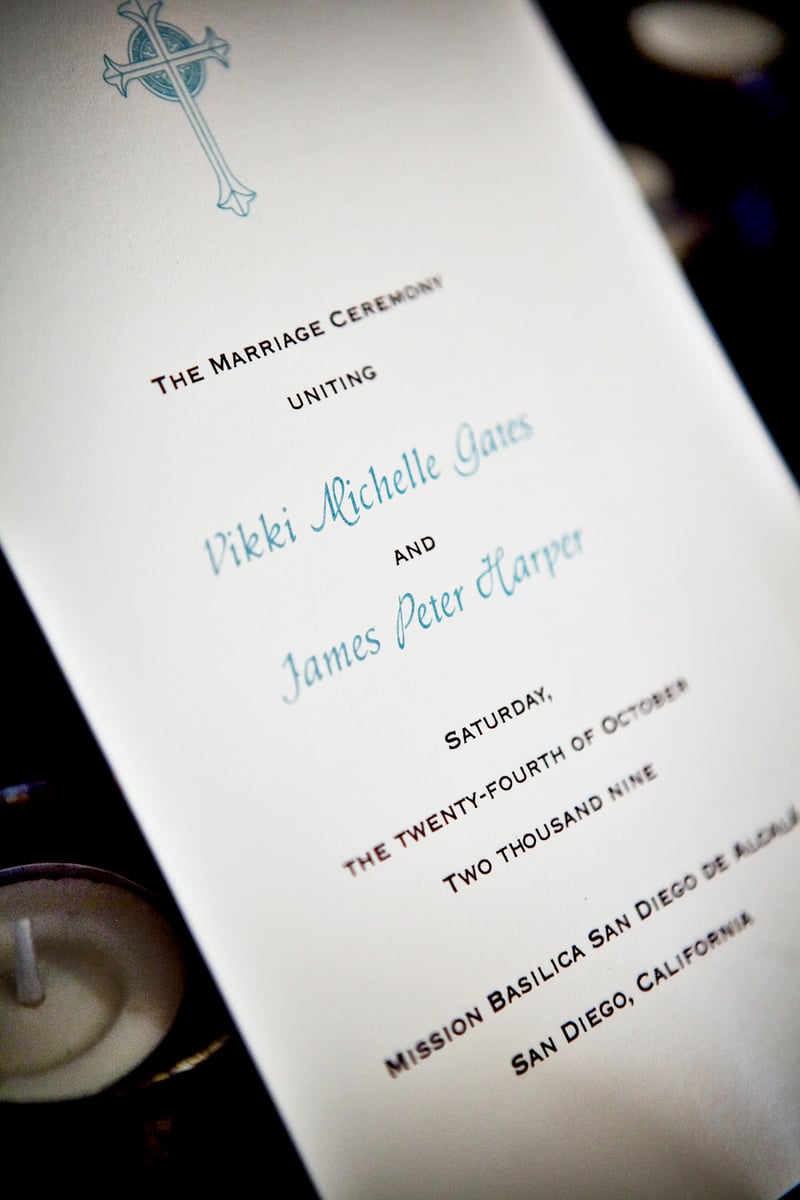 The Marriage Ceremony
uniting
Vikki Michelle Gates
and
James Peter Harper
Saturday,
the twenty-fourth of October
Two thousand nine
Mission Basilica San Diego de Alcalá
San Diego, California